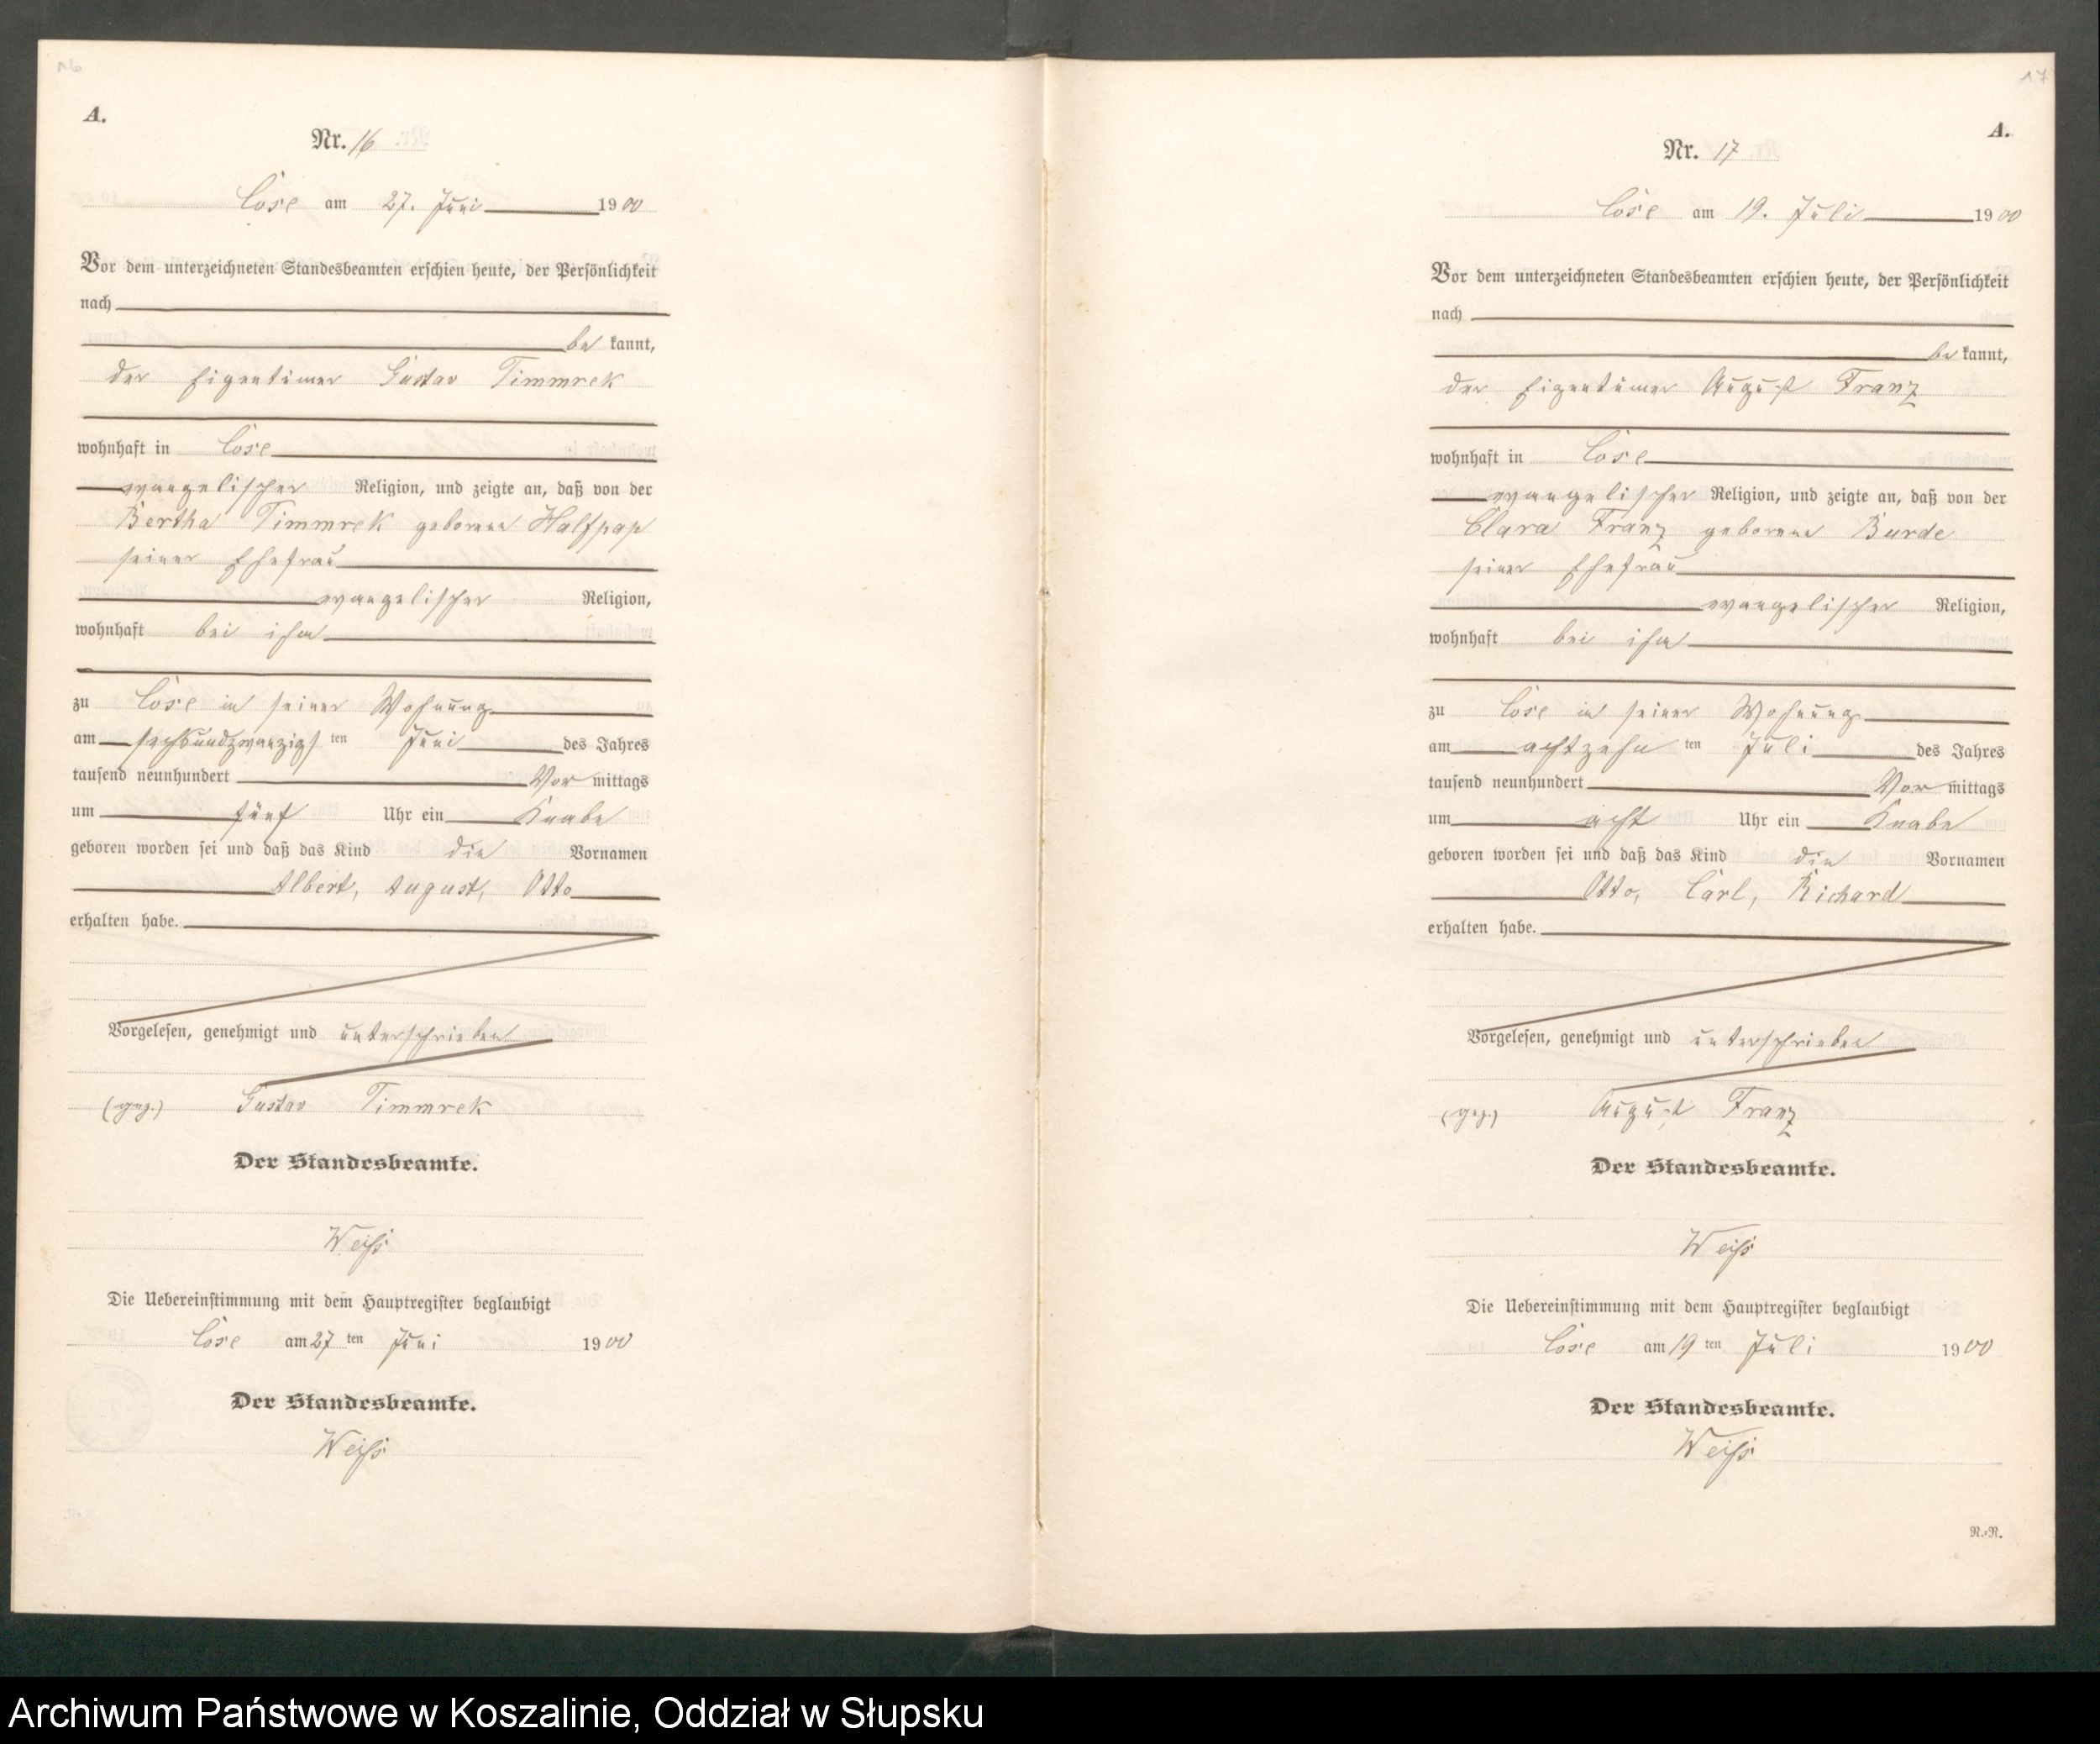 16
A.
Nr. 16
Cose am 27. Juni 1900
Vor dem unterzeichneten Standesbeamten erschien heute, der Persönlichkeit
nach
be kannt,
der Eigentümer Gustav Timmrek
wohnhaft in Cose
evangelischer Religion, und zeigte an, daß von der
Bertha Timmrek geborene Halfpap
seiner Ehefrau
evangelischer Religion,
wohnhaft bei ihm
zu Cose in seiner Wohnung
am sechsundzwanzigsten Juni des Jahres
tausend neunhundert Vor mittags
um fünf Uhr ein Knabe
geboren worden sei und daß das Kind die Vornamen
Albert, August, Otto
erhalten habe.
Vorgelesen, genehmigt und unterschrieben
(gez.) Gustav Timmrek
Der Standesbeamte.
Weiß
Die Uebereinstimmung mit dem Hauptregister beglaubigt
Cose am 27 ten Juni 1900
Der Standesbeamte.
Weiß
17
A.
Nr. 17
Cose am 19. Juli 1900
Vor dem unterzeichneten Standesbeamten erschien heute, der Persönlichkeit
nach
be kannt,
der Eigentümer August Franz
wohnhaft in Cose
evangelischer Religion, und zeigte an, daß von der
Clara Franz geborene Burde
seiner Ehefrau
evangelischer Religion,
wohnhaft bei ihm
zu Cose in seiner Wohnung
am achtzehn ten Juli des Jahres
tausend neunhundert Vor mittags
um acht Uhr ein Knabe
geboren worden sei und daß das Kind die Vornamen
Otto, Carl, Richard
erhalten habe.
Vorgelesen, genehmigt und unterschrieben
(gez.) August Franz
Der Standesbeamte.
Weiß
Die Uebereinstimmung mit dem Hauptregister beglaubigt
Cose am 19 ten Juli 1900
Der Standesbeamte.
Weiß
N.-R.
Archiwum Państwowe w Koszalinie, Oddział w Słupsku